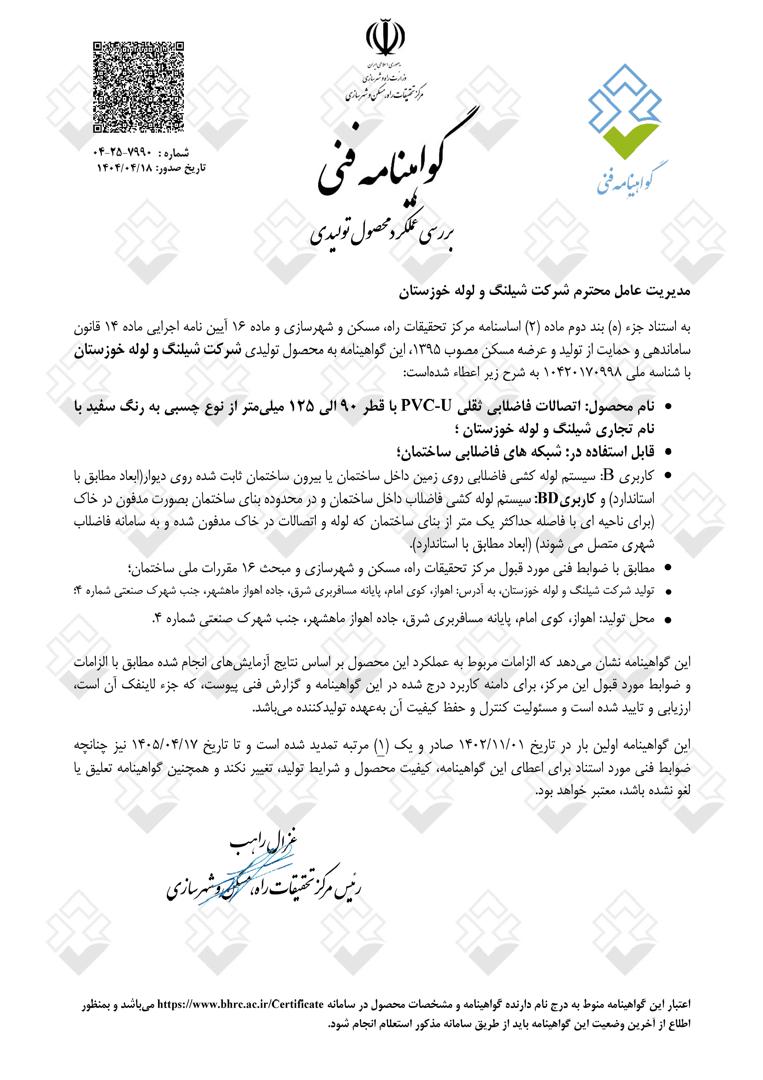 جمهوری اسلامی ایران
وزارت راه و شهرسازی
مرکز تحقیقات راه، مسکن و شهرسازی
گواهینامه فنی
شماره : ۷۹۹۰-۲۵-۰۴
تاریخ صدور: ۱۴۰۴/۰۴/۱۸
گواهینامه فنی
بررسی عملکرد محصول تولیدی
مدیریت عامل محترم شرکت شیلنگ و لوله خوزستان
به استناد جزء (ه) بند دوم ماده (۲) اساسنامه مرکز تحقیقات راه، مسکن و شهرسازی و ماده ۱۶ آیین نامه اجرایی ماده ۱۴ قانون
ساماندهی و حمایت از تولید و عرضه مسکن مصوب ۱۳۹۵، این گواهینامه به محصول تولیدی شرکت شیلنگ و لوله خوزستان
با شناسه ملی ۱۰۴۲۰۱۷۰۹۹۸ به شرح زیر اعطاء شده‌است:
• نام محصول: اتصالات فاضلابی ثقلی PVC-U با قطر ۹۰ الی ۱۲۵ میلی‌متر از نوع چسبی به رنگ سفید با
نام تجاری شیلنگ و لوله خوزستان ؛
• قابل استفاده در: شبکه های فاضلابی ساختمان؛
• کاربری B: سیستم لوله کشی فاضلابی روی زمین داخل ساختمان یا بیرون ساختمان ثابت شده روی دیوار(ابعاد مطابق با
استاندارد) و کاربریBD: سیستم لوله کشی فاضلاب داخل ساختمان و در محدوده بنای ساختمان بصورت مدفون در خاک
(برای ناحیه ای با فاصله حداکثر یک متر از بنای ساختمان که لوله و اتصالات در خاک مدفون شده و به سامانه فاضلاب
شهری متصل می شوند) (ابعاد مطابق با استاندارد).
• مطابق با ضوابط فنی مورد قبول مرکز تحقیقات راه، مسکن و شهرسازی و مبحث ۱۶ مقررات ملی ساختمان؛
• تولید شرکت شیلنگ و لوله خوزستان، به آدرس: اهواز، کوی امام، پایانه مسافربری شرق، جاده اهواز ماهشهر، جنب شهرک صنعتی شماره ۴؛
• محل تولید: اهواز، کوی امام، پایانه مسافربری شرق، جاده اهواز ماهشهر، جنب شهرک صنعتی شماره ۴.
این گواهینامه نشان می‌دهد که الزامات مربوط به عملکرد این محصول بر اساس نتایج آزمایش‌های انجام شده مطابق با الزامات
و ضوابط مورد قبول این مرکز، برای دامنه کاربرد درج شده در این گواهینامه و گزارش فنی پیوست، که جزء لاینفک آن است،
ارزیابی و تایید شده است و مسئولیت کنترل و حفظ کیفیت آن به‌عهده تولیدکننده می‌باشد.
این گواهینامه اولین بار در تاریخ ۱۴۰۲/۱۱/۰۱ صادر و یک (۱) مرتبه تمدید شده است و تا تاریخ ۱۴۰۵/۰۴/۱۷ نیز چنانچه
ضوابط فنی مورد استناد برای اعطای این گواهینامه، کیفیت محصول و شرایط تولید، تغییر نکند و همچنین گواهینامه تعلیق یا
لغو نشده باشد، معتبر خواهد بود.
غزال راهب
رئیس مرکز تحقیقات راه، مسکن و شهرسازی
اعتبار این گواهینامه منوط به درج نام دارنده گواهینامه و مشخصات محصول در سامانه https://www.bhrc.ac.ir/Certificate می‌باشد و بمنظور
اطلاع از آخرین وضعیت این گواهینامه باید از طریق سامانه مذکور استعلام انجام شود.